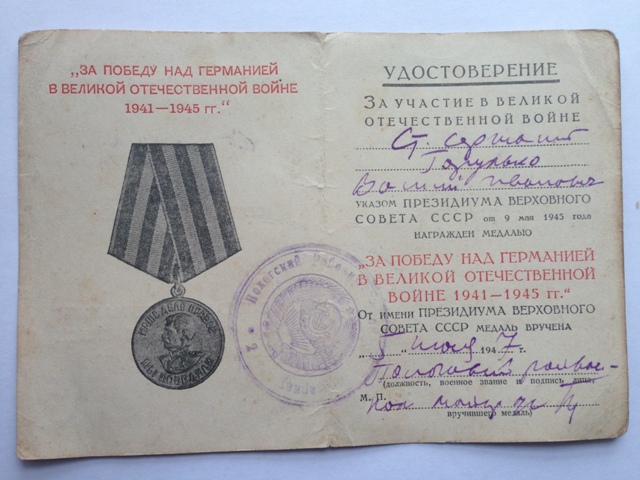 „ЗА ПОБЕДУ НАД ГЕРМАНИЕЙ
В ВЕЛИКОЙ ОТЕЧЕСТВЕННОЙ ВОЙНЕ
1941—1945 гг."
НАШЕ ДЕЛО ПРАВОЕ
МЫ ПОБЕДИЛИ
УДОСТОВЕРЕНИЕ
ЗА УЧАСТИЕ В ВЕЛИКОЙ
ОТЕЧЕСТВЕННОЙ ВОЙНЕ
Ст. сержант
Василий Иванович
УКАЗОМ ПРЕЗИДИУМА ВЕРХОВНОГО
СОВЕТА СССР от 9 мая 1945 года
НАГРАЖДЕН МЕДАЛЬЮ
„ЗА ПОБЕДУ НАД ГЕРМАНИЕЙ
В ВЕЛИКОЙ ОТЕЧЕСТВЕННОЙ
ВОЙНЕ 1941—1945 гг."
От имени ПРЕЗИДИУМА ВЕРХОВНОГО
СОВЕТА СССР МЕДАЛЬ ВРУЧЕНА
1947 г.
(должность, военное звание и подпись лица,
М. П.
вручившего медаль)